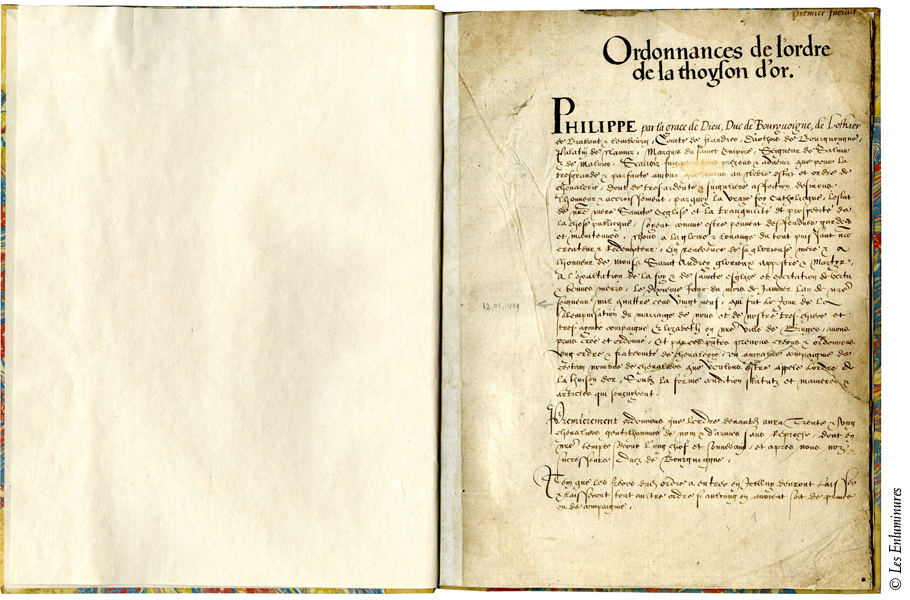 premier fueillet
Ordonnances de lordre
de la thoyson d'or.
PHILIPPE par la grace de Dieu, Duc de Bourgoigne, de Lothier
de Brabant & Lembourg, Conte de flandres, Darthois de Bourgoingne,
Palatin de Namur, Marquis du sainct Empire, Seigneur de Salins
& de Malines. Scavoir presens & advenir que pour la
tresgrande & parfaicte amour que avons au noble estat et ordre de
chevalerie, dont de tresardente & singuliere affection desirons
lhonneur & accroissement, parquoy la vraye foy Catholicque, lestat
de nre mere Saincte Eglise et la tranquilité et prosperité de
la chose publicque, soyent comme estre peuvent deffendues gardees
et maintenues. Nous a la gloire & louange du tout puissant nre
Createur & Redempteur, en reverence de sa glorieuse mere & a
lhonneur de monsr Sainct Andrey glorieux appostre & Martyr,
A l'exaltation de la foy & de saincte esglise et excitation de vertu
& bonnes meurs, le dixiesme Jour du mois de Janvier Lan de nre
Seigneur mil quattre cens vingt neuf, qui fut le Jour de la
12.01.1429
solempnisation du mariaige de nous et de nostre treschiere et
tresaymee compaigne Elizabeth en nre ville de Bruges, avons
prins cree et ordonné, Et par ces pntes prenons creons & ordonnons
ung ordre & fraternité de chevalerie, ou amyable compaignie de
certain nombre de chevaliers que voulons estre appelé lordre de
la thoison dor, Soubz la forme condition statutz et manieres &
articles qui sensuyvent.
Premierement ordonnons que lordre devantdict aura Trente & Ung
chevaliers gentilhommes de nom & d'armes sans Reproche, dont en
nre temps serons l'ung chef et souverain, et apres nous noz
successeurs Ducz de Bourgongne.
Item que les freres dudict ordre a entree en Icelluy devront laisser
& laisseront tout aultre ordre si aulcung en avoient soit de prince
ou de compaignie.
1
© Les Enluminures